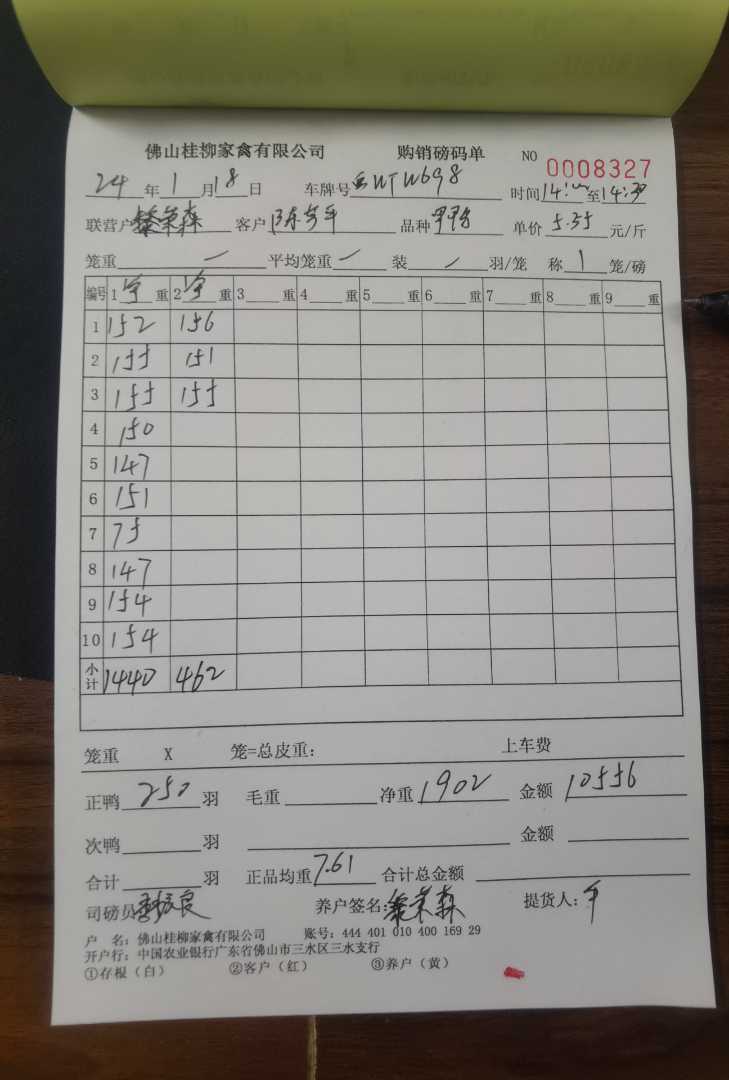 佛山桂柳家禽有限公司 购销磅码单 NO 0008327
24 年 1 月 18 日 车牌号 WTW698 时间 14: 至 14:30
联营户 黎荣森 客户 品种 单价 5.55 元/斤
笼重 一 平均笼重 一 装 一 羽/笼 称 1 笼/磅
编号 1 净 重 2 净 重 3 重 4 重 5 重 6 重 7 重 8 重 9 重
1 152 156
2 155 151
3 155 155
4 150
5 147
6 151
7 75
8 147
9 154
10 154
小计 1440 462
笼重 X 笼=总皮重: 上车费
正鸭 250 羽 毛重 净重 1902 金额 10556
次鸭 羽 金额
合计 羽 正品均重 7.61 合计总金额
司磅员 养户签名: 黎荣森 提货人: 平
户 名: 佛山桂柳家禽有限公司 账号: 444 401 010 400 169 29
开户行: 中国农业银行广东省佛山市三水区三水支行
①存根(白) ②客户(红) ③养户(黄)